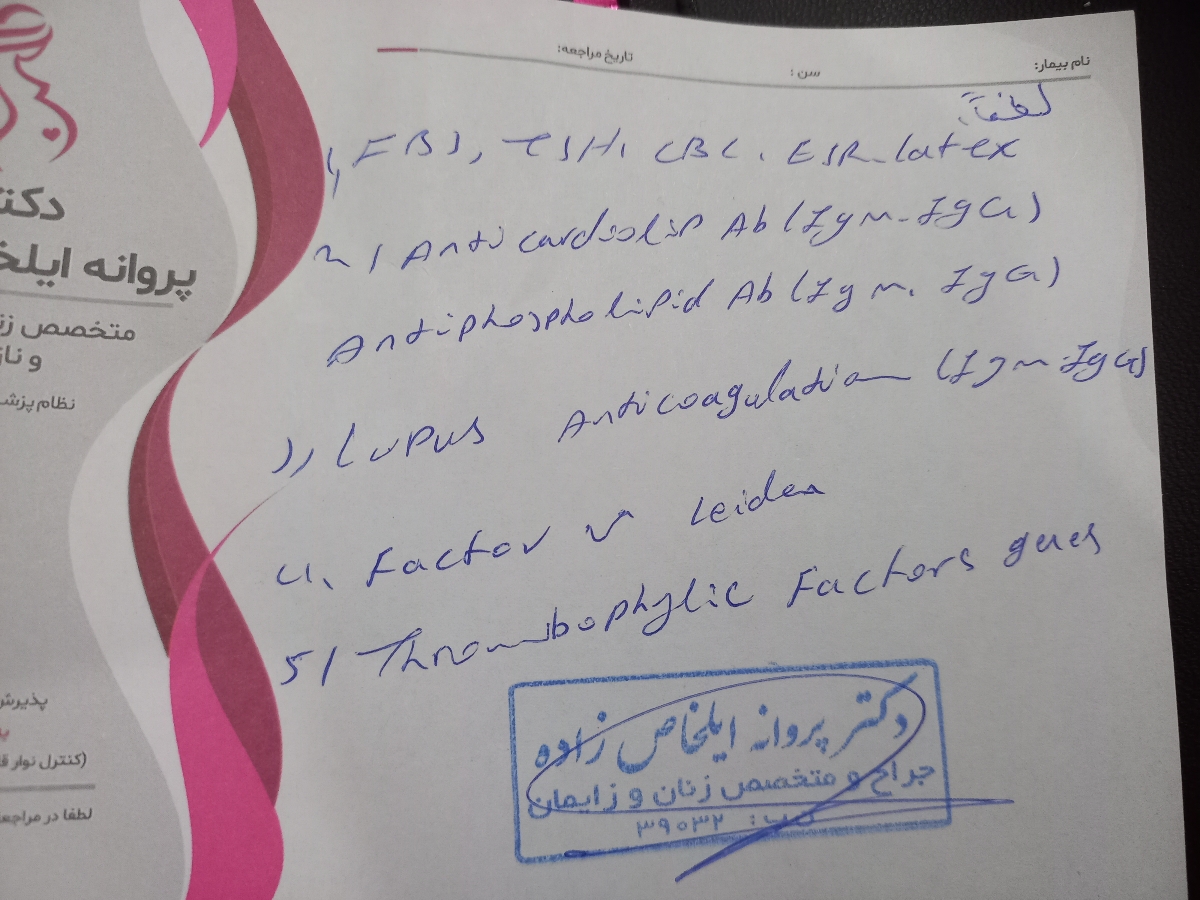 نام بیمار: سن : تاریخ مراجعه:
لطفاً
1, FBS, TSH, CBC. ESR_latex
2/ Anti cardiolip Ab (IgM-IgG)
Antiphospholipid Ab (IgM. IgG)
3, Lupus Anticoagulation (IgM-IgG)
4, Factor V Leiden
5/ Thrombophylic Factors genes
دکتر پروانه ایلخاص زاده
جراح و متخصص زنان و زایمان
۳۹۰۳۲
دکت
پروانه ایلخ
متخصص زن
و ناز
نظام پزش
پذیرش
(کنترل نوار ق
لطفا در مراجع